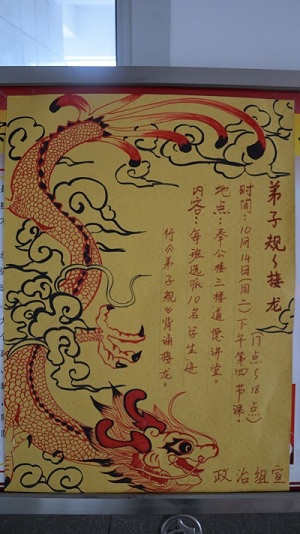 弟子规~接龙
时间:10月14日(周二)下午第四节课.
(17点~18点)
地点:奉公楼三楼道德讲堂.
内容:每班选派10名学生进
行《弟子规》背诵接龙。
政治组宣